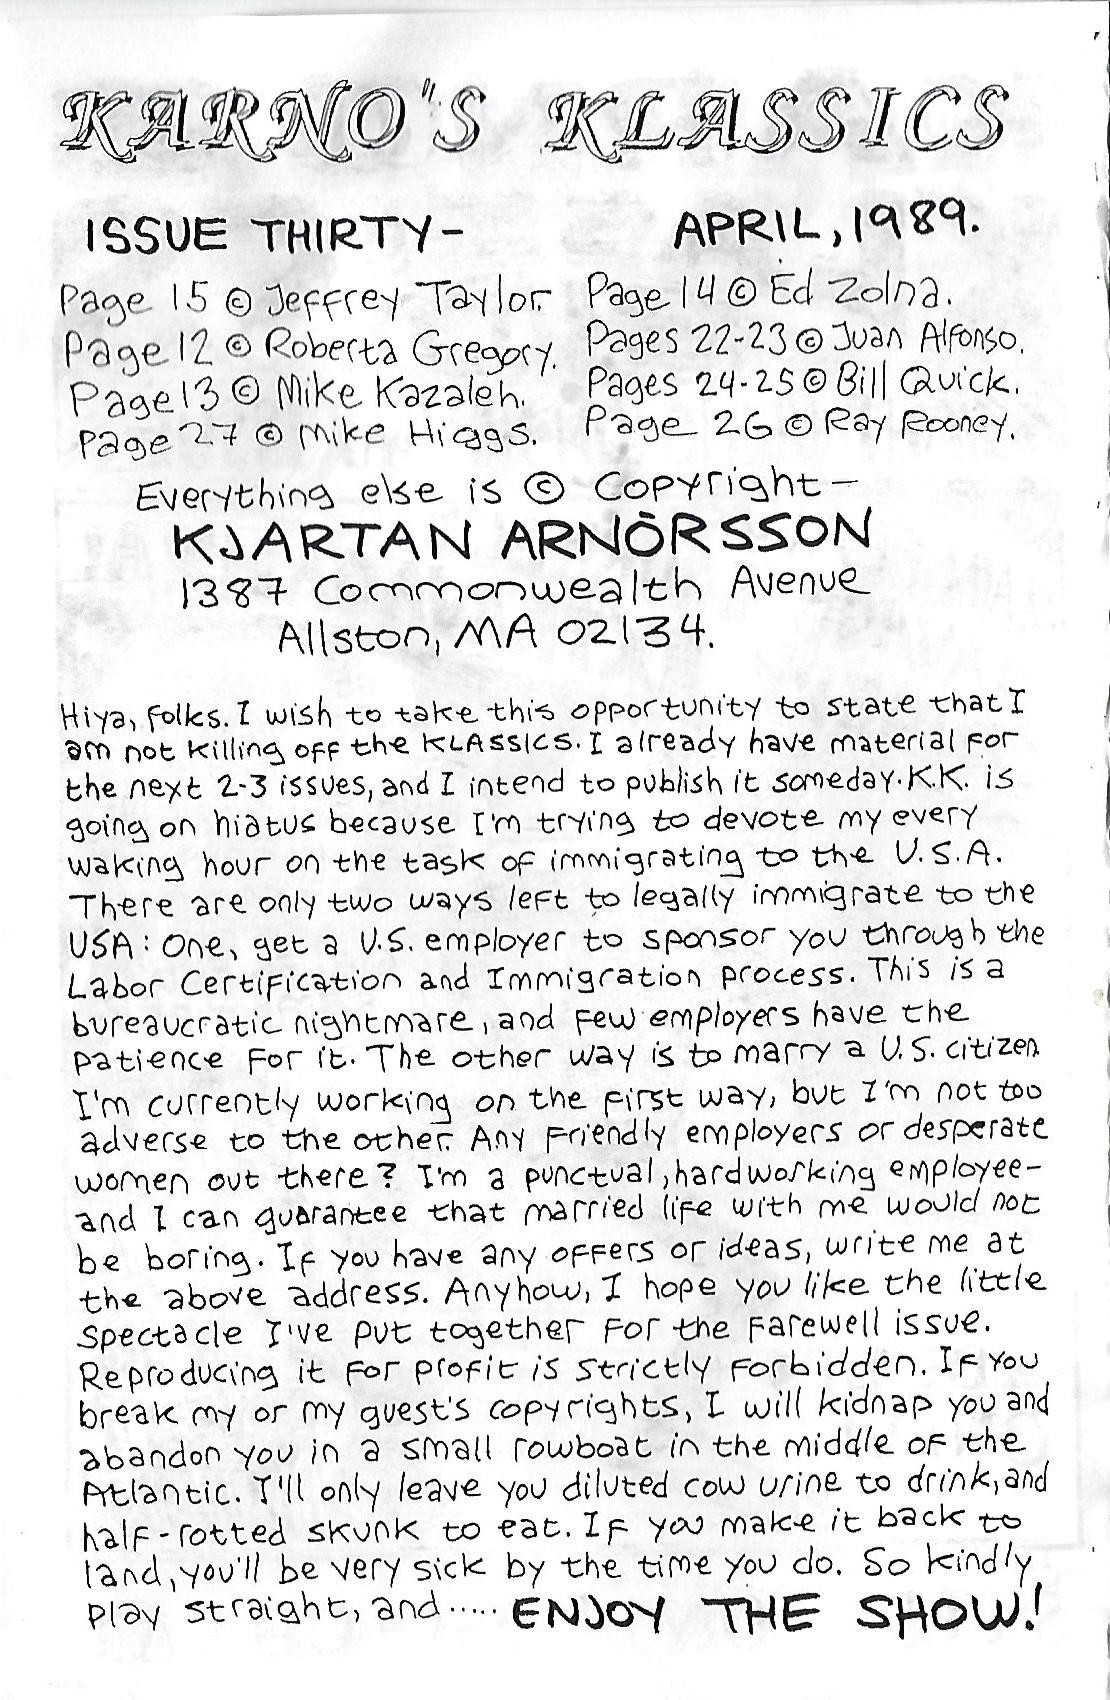 KARNO'S KLASSICS
ISSUE THIRTY- APRIL, 1989.
Page 15 © Jeffrey Taylor.
Page 12 © Roberta Gregory.
Page 13 © Mike Kazaleh.
Page 27 © Mike Higgs.
Page 14 © Ed Zolna.
Pages 22-23 © Juan Alfonso.
Pages 24-25 © Bill Quick.
Page 26 © Ray Rooney.
Everything else is © Copyright-
KJARTAN ARNÓRSSON
1387 Commonwealth Avenue
Allston, MA 02134.
Hiya, folks. I wish to take this opportunity to state that I
am not killing off the KLASSICS. I already have material for
the next 2-3 issues, and I intend to publish it someday. K.K. is
going on hiatus because I'm trying to devote my every
waking hour on the task of immigrating to the U.S.A.
There are only two ways left to legally immigrate to the
USA: One, get a U.S. employer to sponsor you through the
Labor Certification and Immigration process. This is a
bureaucratic nightmare, and few employers have the
patience for it. The other way is to marry a U.S. citizen.
I'm currently working on the first way, but I'm not too
adverse to the other. Any friendly employers or desperate
women out there? I'm a punctual, hardworking employee-
and I can guarantee that married life with me would not
be boring. If you have any offers or ideas, write me at
the above address. Anyhow, I hope you like the little
spectacle I've put together for the farewell issue.
Reproducing it for profit is strictly forbidden. If you
break my or my guest's copyrights, I will kidnap you and
abandon you in a small rowboat in the middle of the
Atlantic. I'll only leave you diluted cow urine to drink, and
half-rotted skunk to eat. If you make it back to
land, you'll be very sick by the time you do. So kindly
play straight, and..... ENJOY THE SHOW!